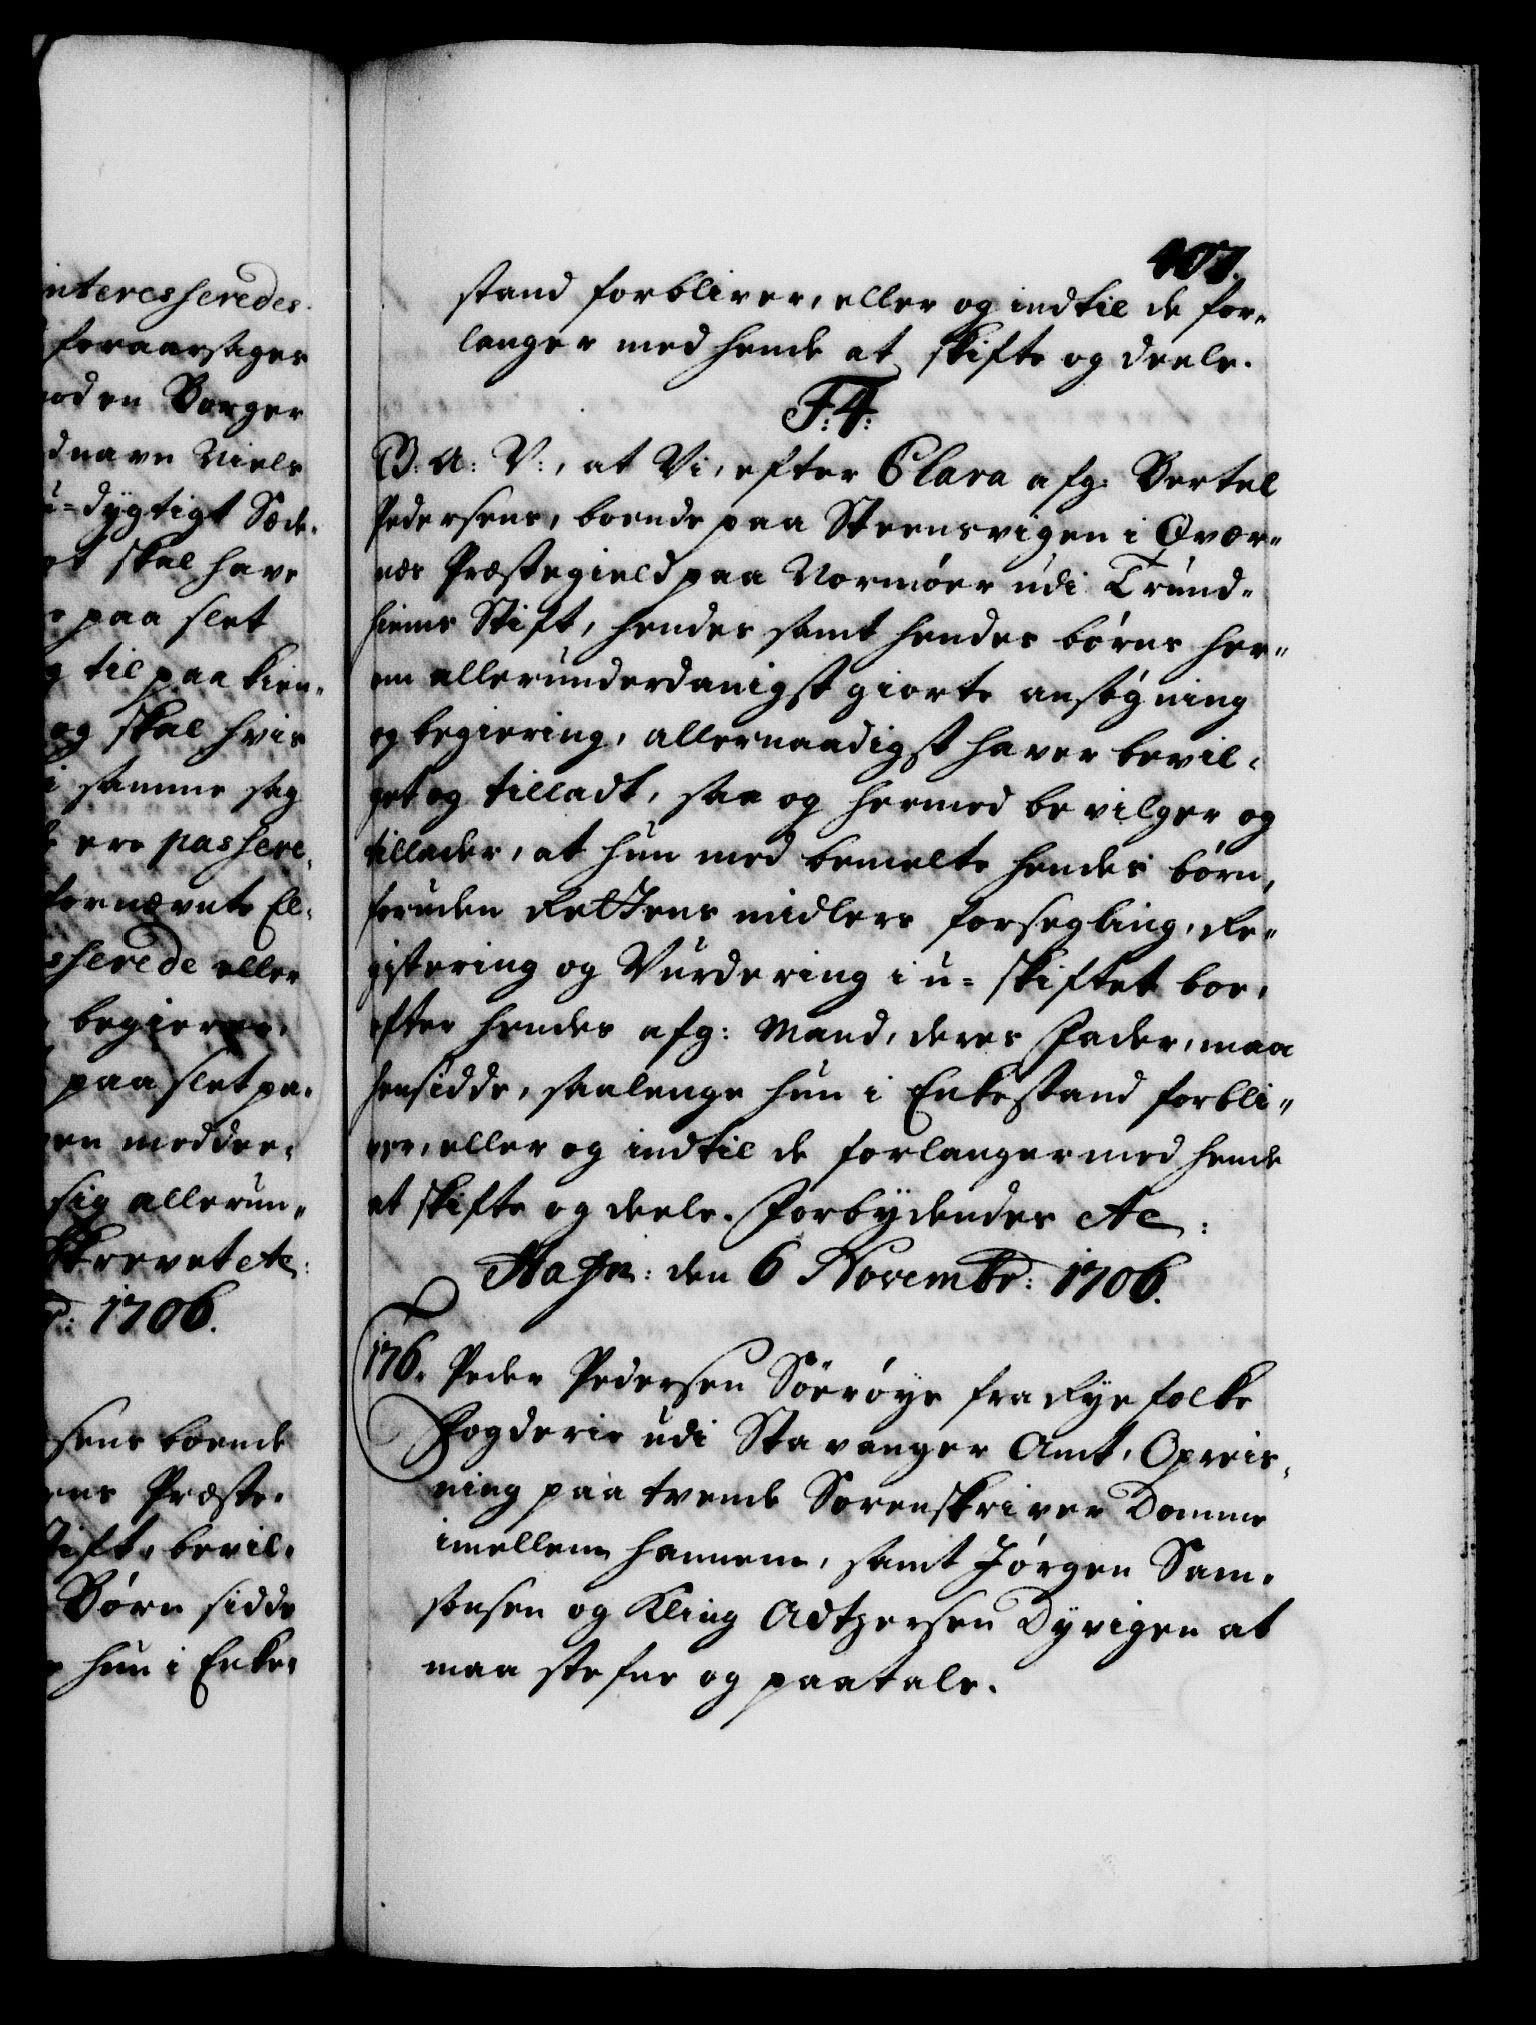 interesseredes
foraarsager
mod en Borger
dnavn Niels
u-dygtigt Sæde-
at skal have
paa slet
og til paakien-
og skal hvis
i samme sag
ere passere-
fornævnte El-
sserede eller
begierer,
paa slet pa-
en meddee-
sig allerun-
Skrevet etc:
1706.
sens boende
ens Præste-
Stift, bevil-
Børn sidde
hun i Enke-
407.
stand forbliver, eller og indtil de for-
langer med hende at skifte og deele.
F:4:
G: A: V:, at Vi, efter Clara afg: Bertel
Pedersens, boende paa Steensvigen i Qvær-
næs Præstegield paa Normøer udi Trund-
hiems Stift, hendes samt hendes børns her-
om allerunderdanigst giorte ansøgning
og begiering, allernaadigst haver bevil-
get og tilladt, saa og hermed bevilger og
tillader, at hun med bemelte hendes børn,
foruden Rettens midlers forsegling, Re-
gistering og Vurdering i u-skiftet boe,
efter hendes afg: Mand, deres Fader, maa
hensidde, saalenge hun i Enkestand forbli-
ver, eller og indtil de forlanger med hende
at skifte og deele. Forbydendes etc:
Hafn: den 6 Novembr: 1706.
176. Peder Pedersen Sörøye fra Ryefolke
Fogderie udi Stavanger Amt, Opreis-
ning paa tvende Sorenskriver Domme
imellem hannem, samt Jørgen Sam-
sonsen og Kling Adtzersen Dyvigen at
maa stefne og paatale.